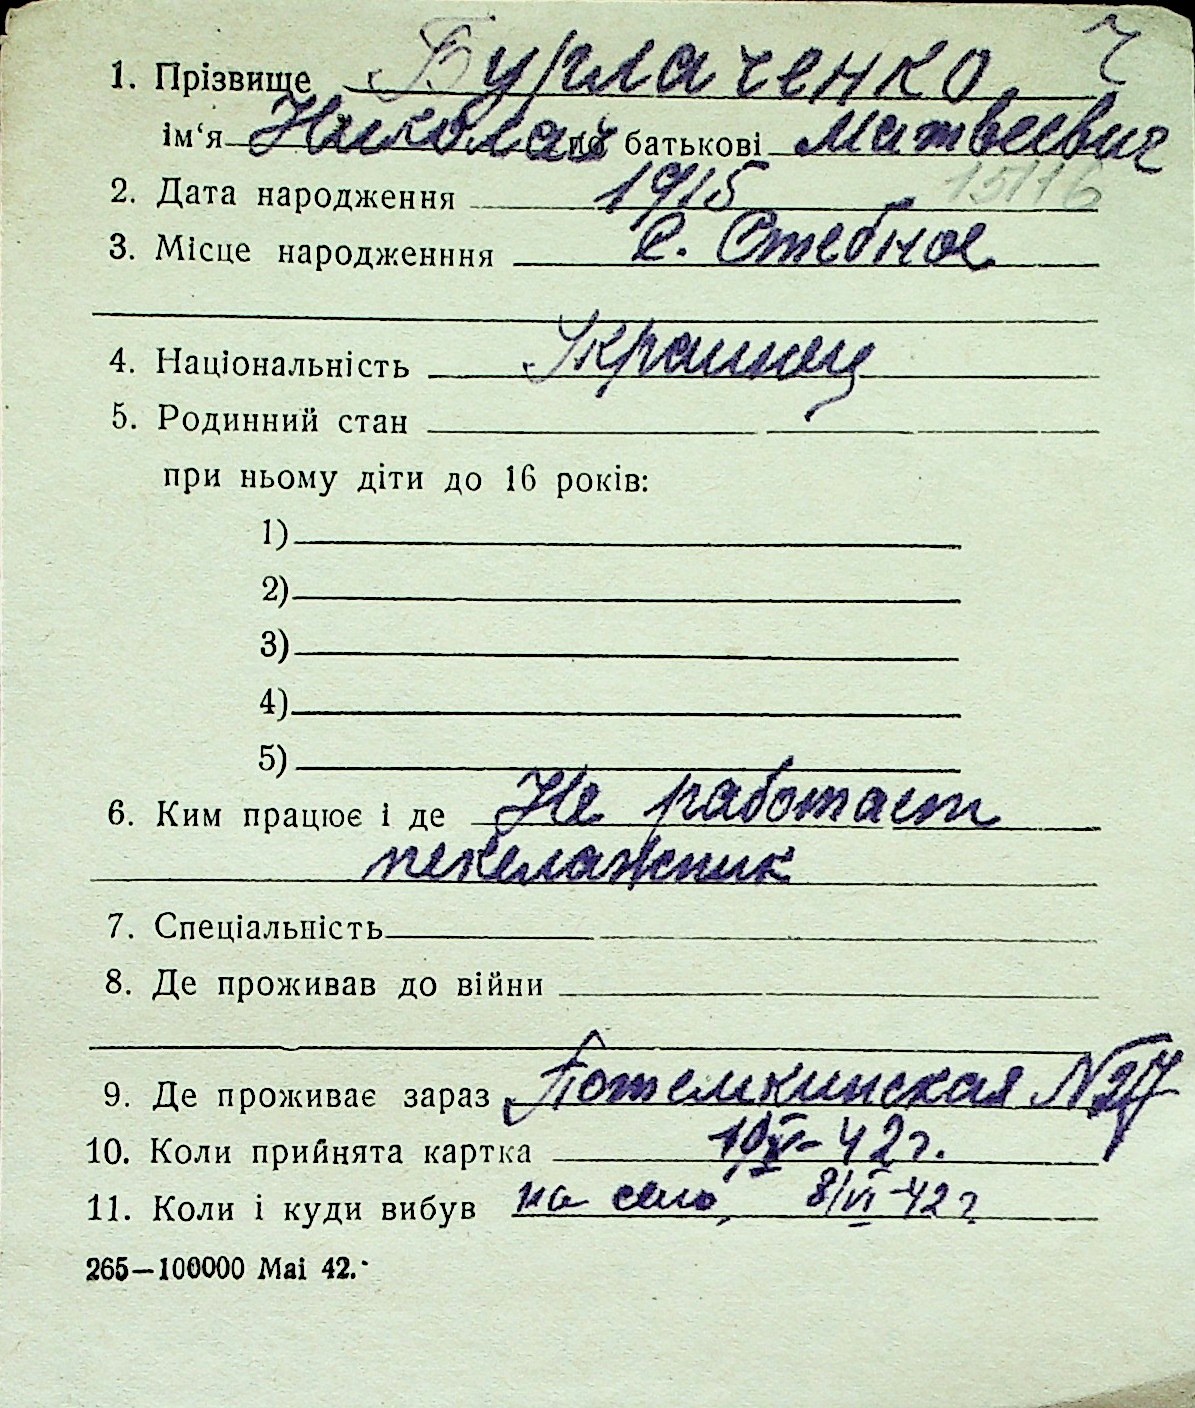 1. Прізвище Бурлаченко ч
ім‘я Николай по батькові Матвеевич
2. Дата народження 1915 15/16
3. Місце народженння с. Стебное
4. Національність Украинец
5. Родинний стан
при ньому діти до 16 років:
1)
2)
3)
4)
5)
6. Ким працює і де Не работает
7. Спеціальність
8. Де проживав до війни
9. Де проживає зараз Потемкинская
10. Коли прийнята картка 10/V-42г.
11. Коли і куди вибув на село, 8/VI-42г
265—100000 Mai 42.